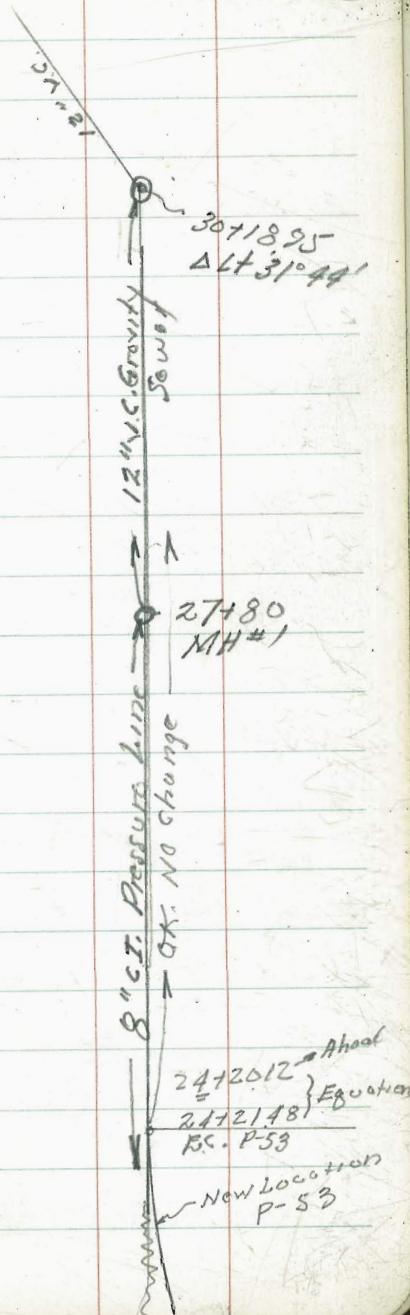 12" V.C.
30+18.95
Δ Lt 31° 44'
12" V.C. Gravity
Sewer
27+80
MH #1
8" C.I. Pressure Line
OK. No Change
24+20.12 Ahead
24+21.48 } Equation
E.C. P-53
New Location
P-53